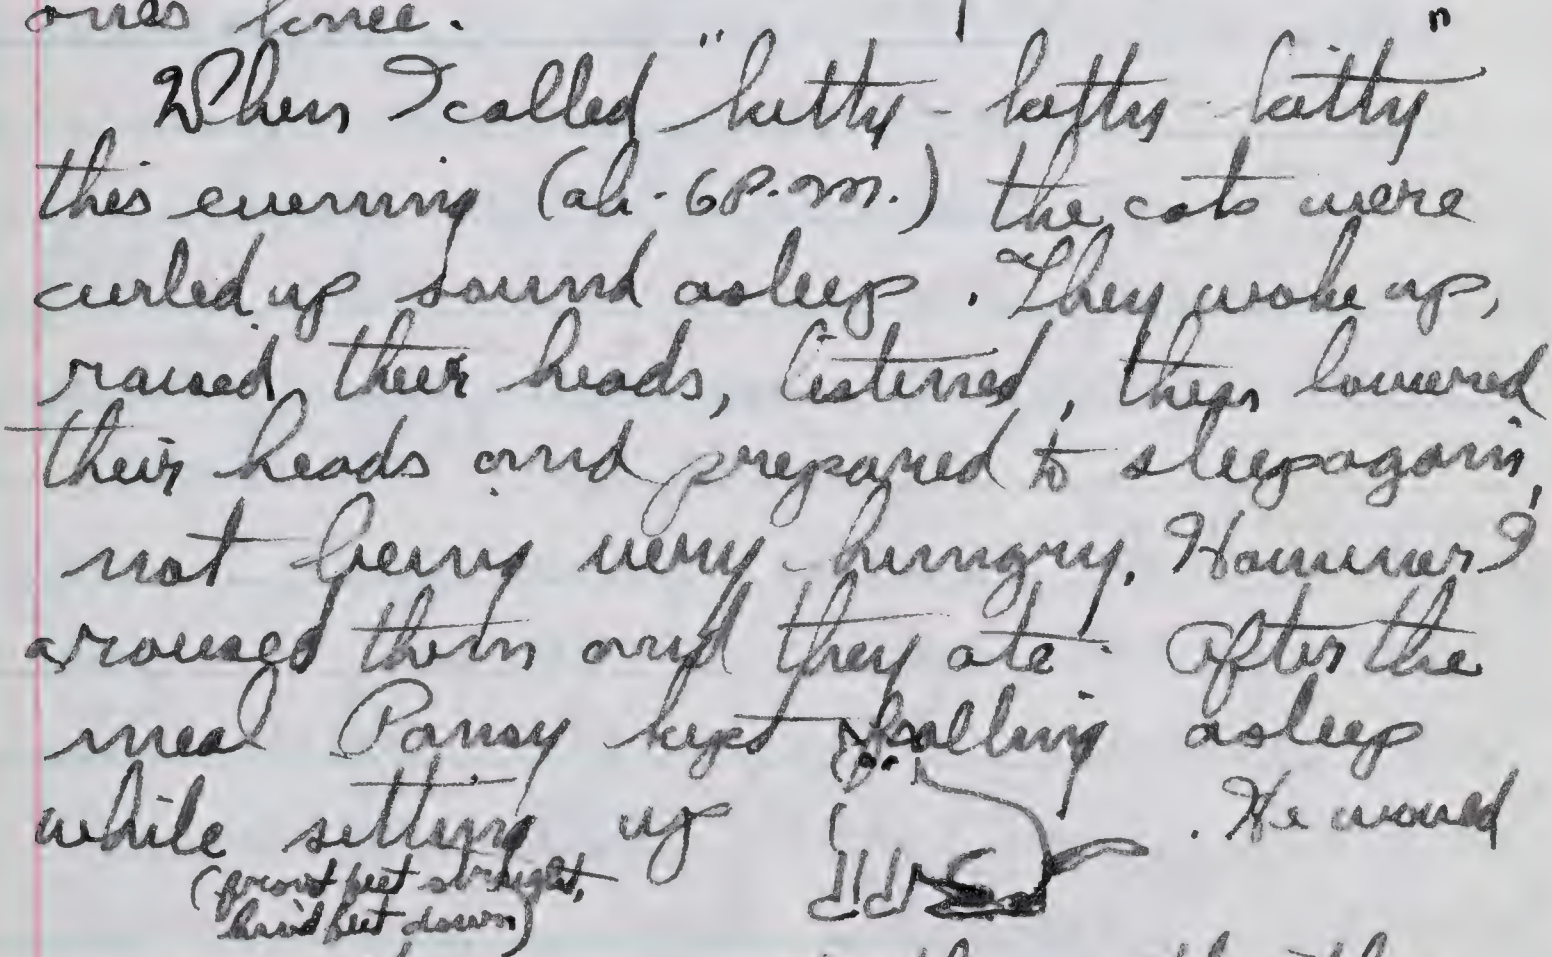 ones knee.
When I called "kitty - kitty - kitty"
this evening (ab. 6 P.M.) the cats were
curled up sound asleep. They woke up,
raised their heads, listened, then lowered
their heads and prepared to sleep again,
not being very hungry. However I
aroused them and they ate. After the
meal Pansy kept falling asleep
while sitting up . He would
(front feet straight,
hind feet down)